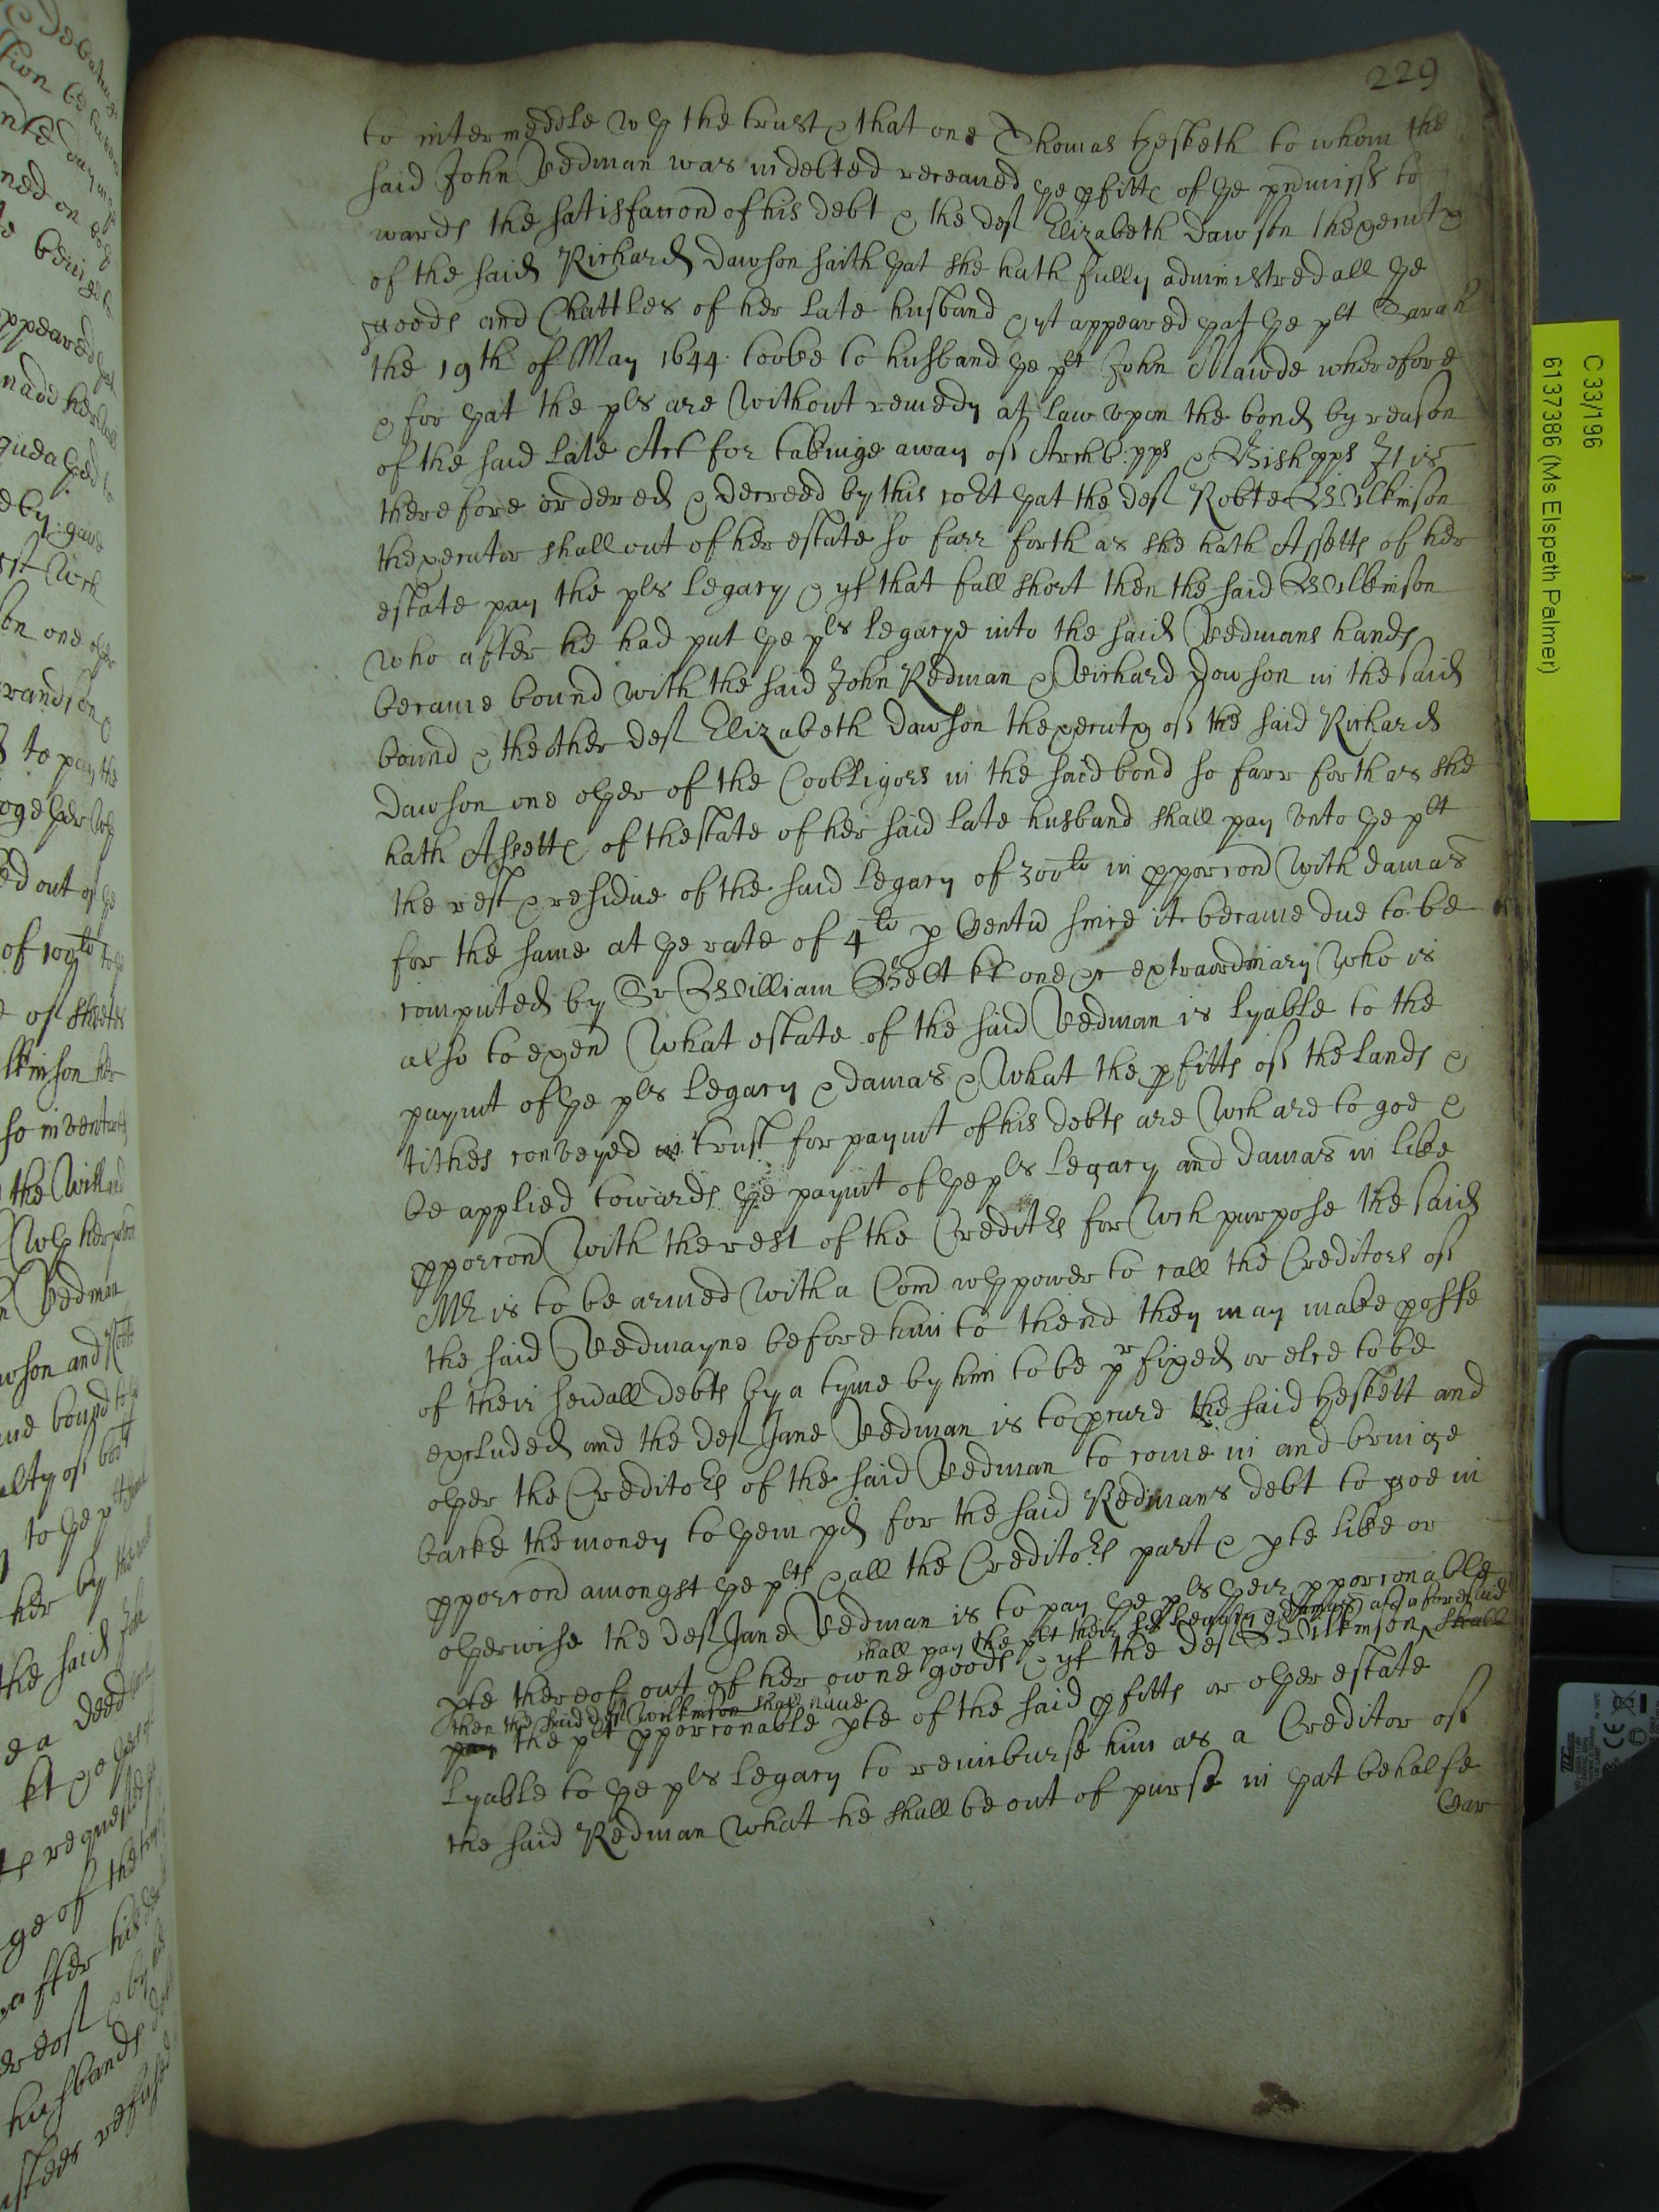 229
to intermeddle wth the trust & that one Thomas Hesketh to whom the
said John Redman was indebted receaued ye pfitte of ye pnmisss to
wards the satisfaccon of his debt & the deft Elizabeth Dawson thexecutx
of the said Richard Dawson saith yat she hath fully administred all ye
goods and Chattles of her late husband & yt appeared yat ye plt Sarah
the 19th of May 1644 tooke to husband ye plt John Mawde wherefore
& for yat the pls are without remedy at law vpon the bond by reason
of the said late Act for takinge away of Archb:pps & Bishopps It is
therefore ordered & decreed by this cort yat the deft Robte Wilkinson
thexecutor shall out of her estate so farr forth as she hath Assetts of her
estate pay the pls legacy & yf that fall short then the said Wilkinson
who after he had put ye pls legacye into the said Redmans hands
became bound with the said John Redman & Richard Dowson in the said
bound & the other deft Elizabeth Dawson thexecutx of the said Richard
Dawson one oyer of the Coobligors in the said bond so farr forth as she
hath Assette of thestate of her said late husband shall pay vnto ye plt
the rest & residue of the said legacy of 300li in pporcon with damas
for the same at ye rate of 4li p Centu since it became due to be
computed by Sr William Belt kt one &c extraordinary who is
also to exen what estate of the said Redman is lyable to the
paymt of ye pls legacy & damas & what the pfitts of the lands &
tithes conveyed in trust for paymt of his debts are wch are to goe &
be applied towards ye paymt of ye pls legacy and damas in like
pporcon with the rest of the Creditrs for wch purpose the said
Mr is to be armed with a Com wth power to call the Creditors of
the said Redmayne before him to thend they may make proffe
of their seuall debts by a tyme by him to be prfixed or else to be
excluded and the deft Jane Redman is to pcure the said Heskett and
oyer the Creditors of the said Redman to come in and bringe
backe the money to yem pd for the said Redmans debt to goe in
pporcon amongst ye plts & all the Creditors part & pte like or
oyerwise the deft Jane Redman is to pay ye pls yeir pporconable
shall pay the plt their sd legacy & damas as aforesaid
pte thereof out of her owne goods & yf the deft Wilkinson shall
then the said deft Wilkinson shall haue
pay the plt pporconable pte of the said pfitts or oyer estate
lyable to ye pls legacy to reimburse him as a Creditor of
the said Redman what he shall be out of purse in yat behalfe
Car
C 33/196
6137386 (Ms Elspeth Palmer)